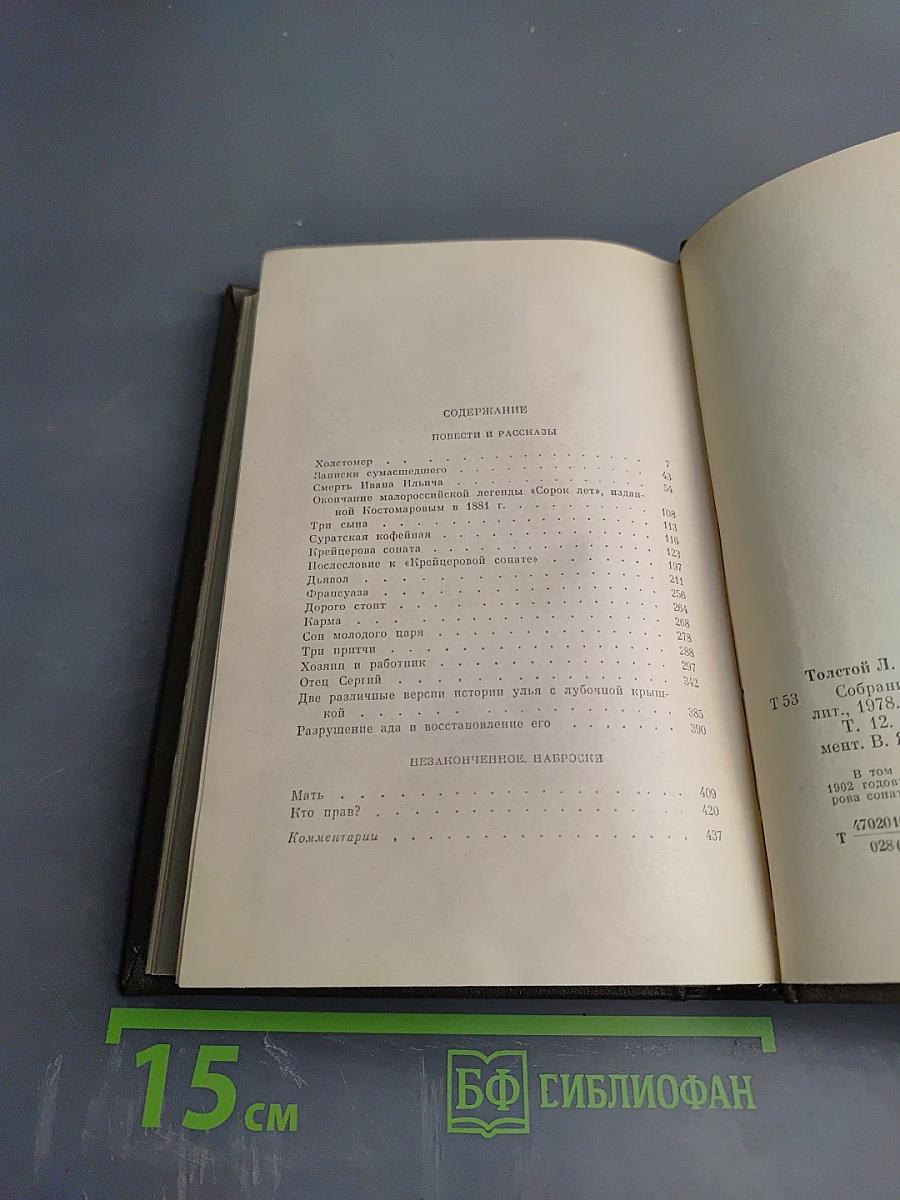 СОДЕРЖАНИЕ
ПОВЕСТИ И РАССКАЗЫ
Холстомер . . . . . . . . . . . . . . 7
Записки сумасшедшего . . . . . . . . . . 43
Смерть Ивана Ильича . . . . . . . . . . 54
Окончание малороссийской легенды «Сорок лет», издан-
ной Костомаровым в 1881 г. . . . . . . . . 108
Три сына . . . . . . . . . . . . . . 113
Суратская кофейная . . . . . . . . . . . 116
Крейцерова соната . . . . . . . . . . . 123
Послесловие к «Крейцеровой сонате» . . . . . . 197
Дьявол . . . . . . . . . . . . . . . 211
Франсуаза . . . . . . . . . . . . . . 256
Дорого стоит . . . . . . . . . . . . . 264
Карма . . . . . . . . . . . . . . . 268
Сон молодого царя . . . . . . . . . . . 278
Три притчи . . . . . . . . . . . . . . 288
Хозяин и работник . . . . . . . . . . . 297
Отец Сергий . . . . . . . . . . . . . 342
Две различные версии истории улья с лубочной крыш-
кой . . . . . . . . . . . . . . . 385
Разрушение ада и восстановление его . . . . . . 390
НЕЗАКОНЧЕННОЕ. НАБРОСКИ
Мать . . . . . . . . . . . . . . . 409
Кто прав? . . . . . . . . . . . . . . 420
Комментарии . . . . . . . . . . . . . 437
Толстой Л.
Т 53 Собрани
лит., 1978.
Т. 12.
мент. В.
В том
1902 годов
рова сонат
Т 4702010
028(
15 см
БФ СИБЛИОФАН